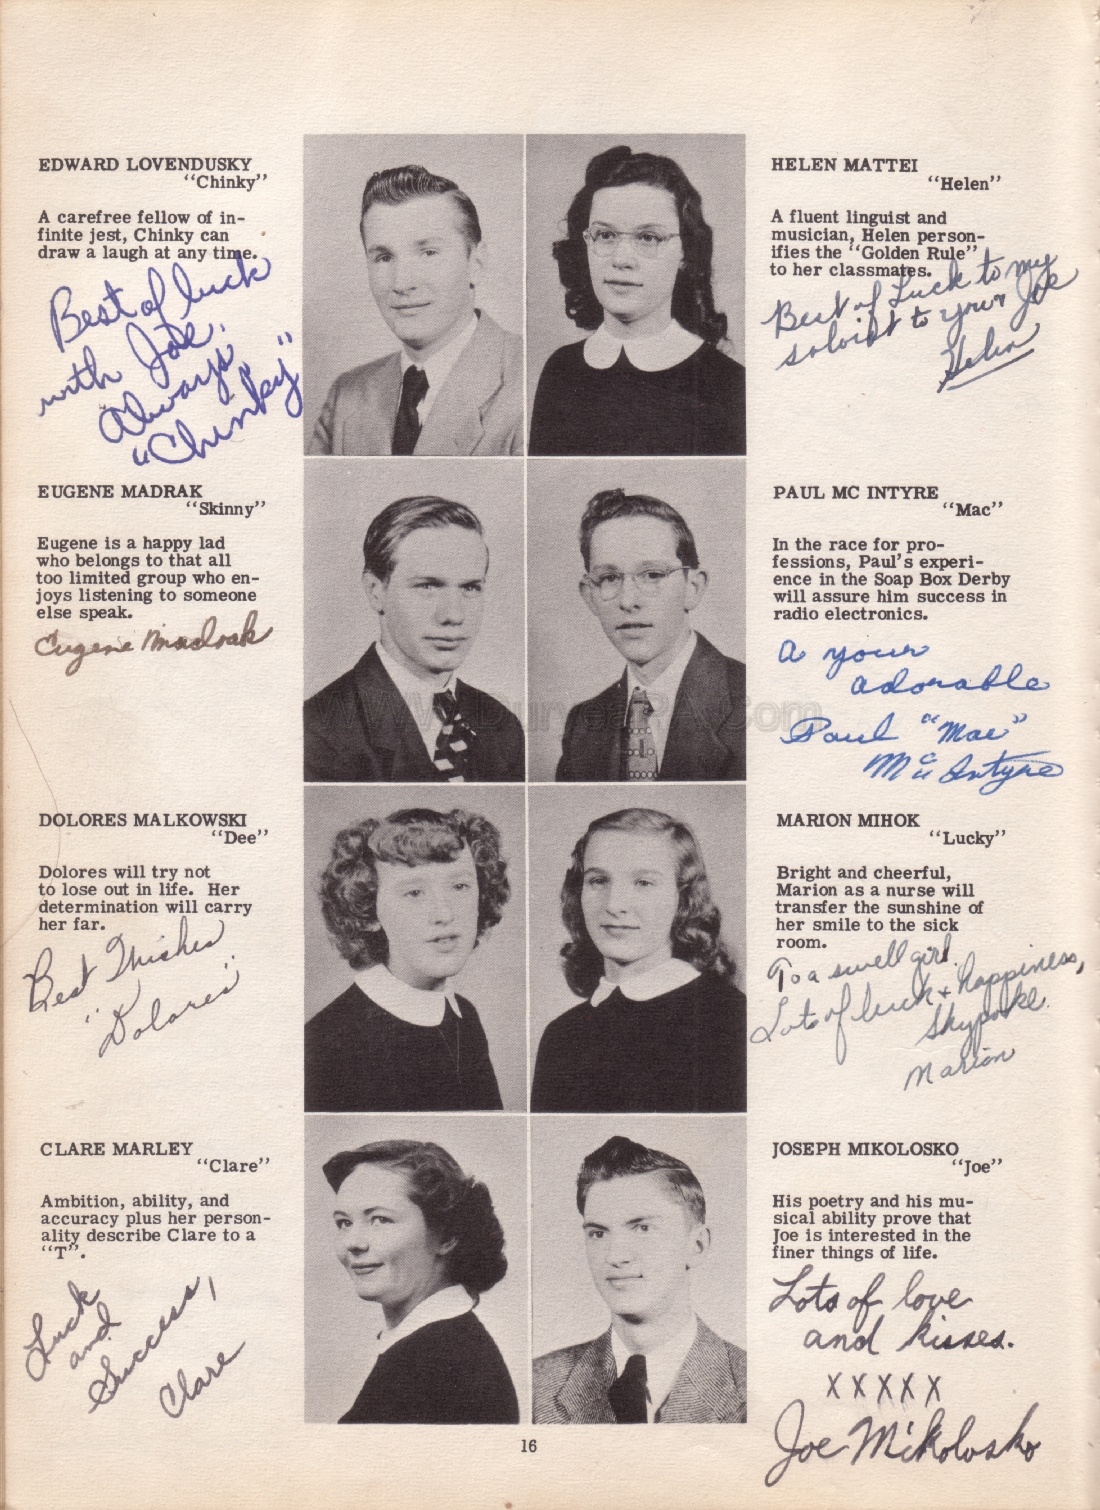 EDWARD LOVENDUSKY
"Chinky"
A carefree fellow of in-
finite jest, Chinky can
draw a laugh at any time.
Best of luck
with Joe.
Always,
"Chinky"
HELEN MATTEI
"Helen"
A fluent linguist and
musician, Helen person-
ifies the "Golden Rule"
to her classmates.
Best of Luck to my
soloist to your Joe
Helen
EUGENE MADRAK
"Skinny"
Eugene is a happy lad
who belongs to that all
too limited group who en-
joys listening to someone
else speak.
Eugene Madrak
PAUL MC INTYRE
"Mac"
In the race for pro-
fessions, Paul's experi-
ence in the Soap Box Derby
will assure him success in
radio electronics.
A your
adorable
Paul "Mac"
McIntyre
DOLORES MALKOWSKI
"Dee"
Dolores will try not
to lose out in life. Her
determination will carry
her far.
Best Wishes
"Dolores"
MARION MIHOK
"Lucky"
Bright and cheerful,
Marion as a nurse will
transfer the sunshine of
her smile to the sick
room.
To a swell girl.
Lots of luck + happiness,
Marion
CLARE MARLEY
"Clare"
Ambition, ability, and
accuracy plus her person-
ality describe Clare to a
"T".
Luck
and
Success,
Clare
JOSEPH MIKOLOSKO
"Joe"
His poetry and his mu-
sical ability prove that
Joe is interested in the
finer things of life.
Lots of love
and kisses.
X X X X X
Joe Mikolosko
16
www.DuryeaPA.Com